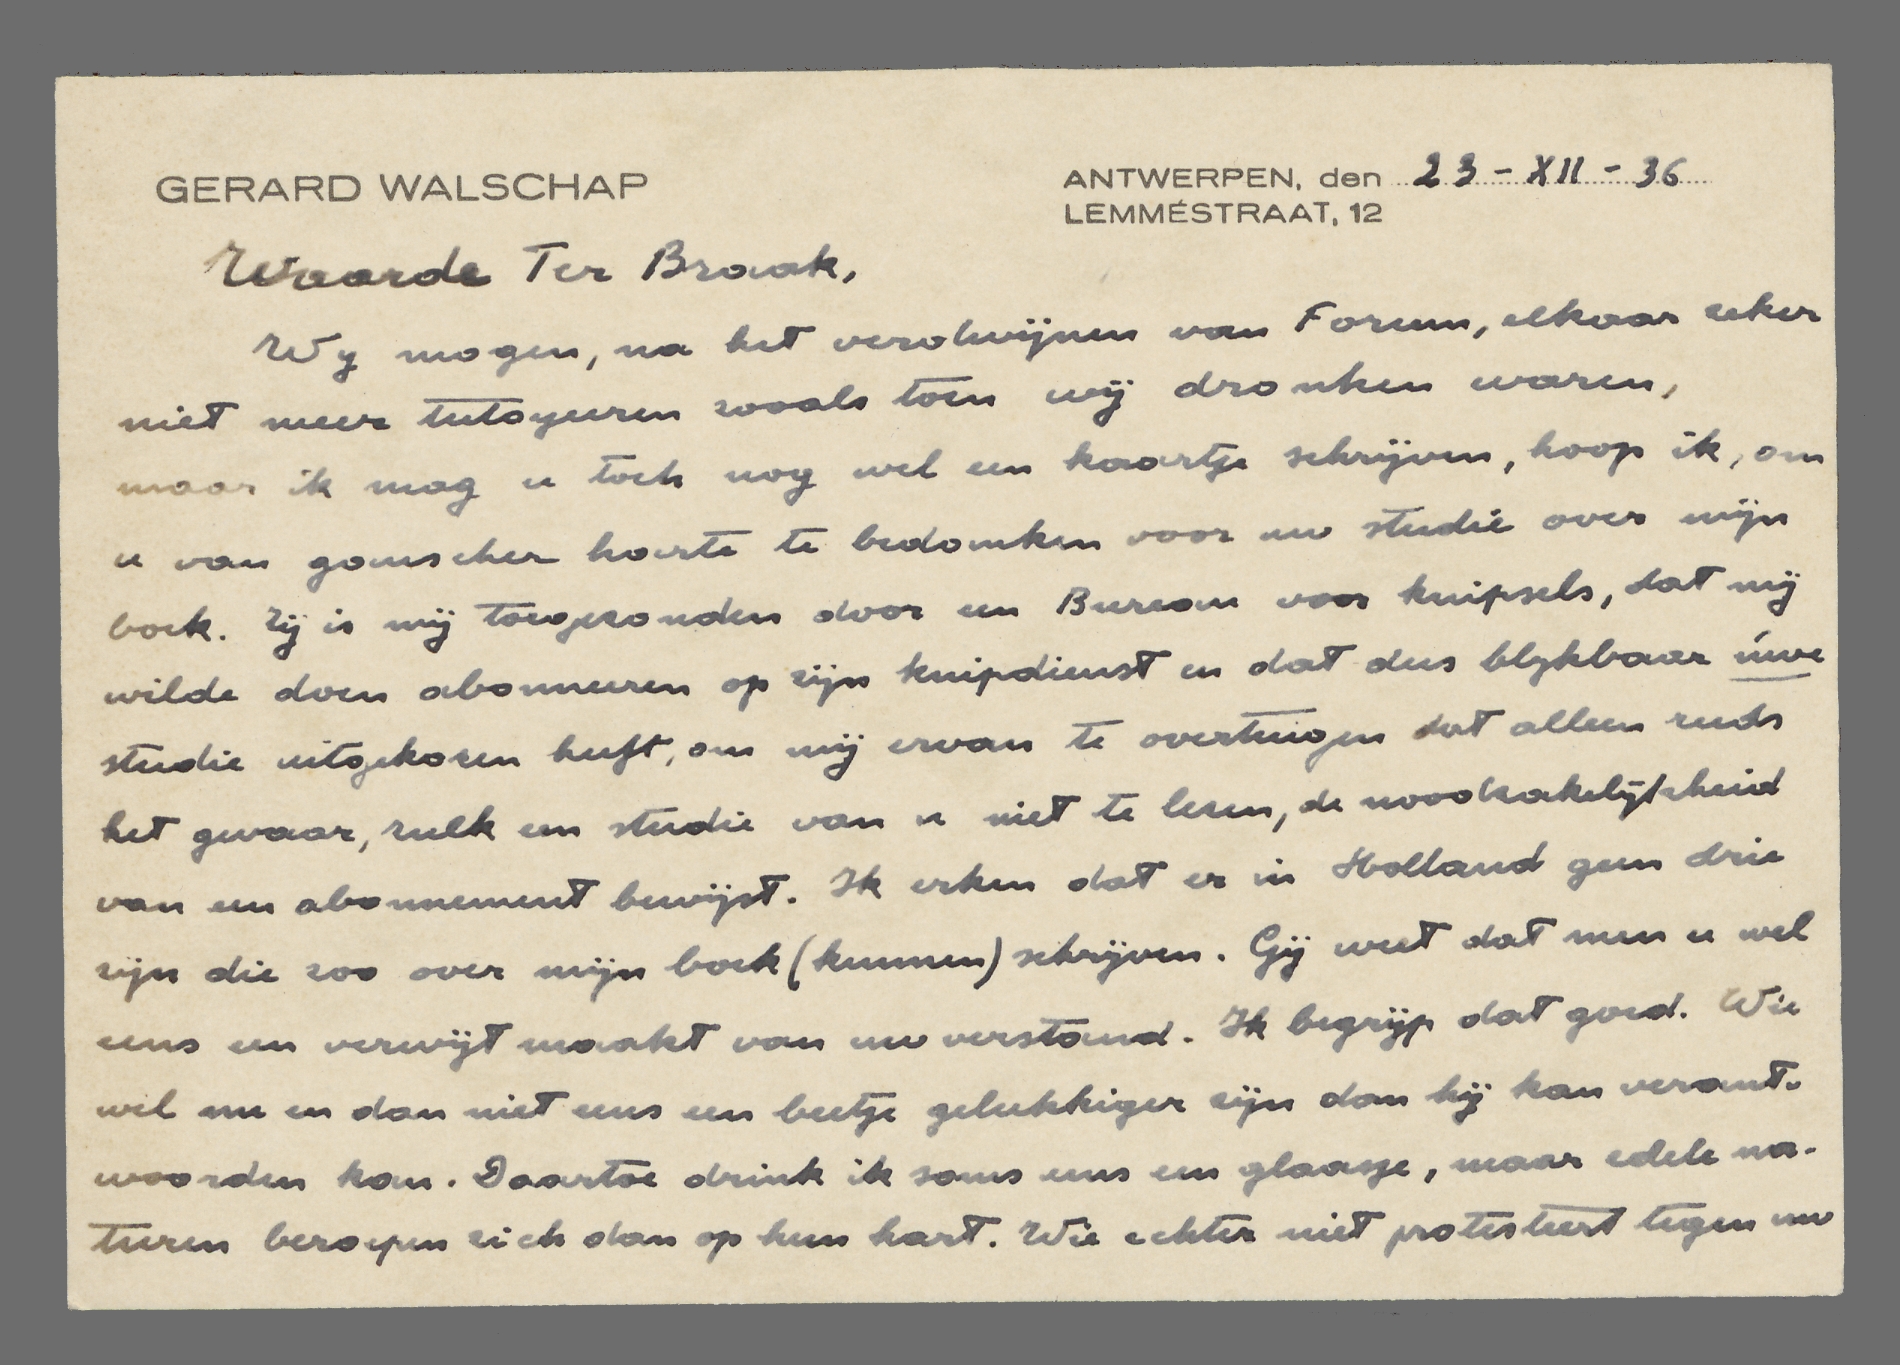 GERARD WALSCHAP
ANTWERPEN, den 23-XII-36
LEMMÉSTRAAT, 12
Waarde Ter Braak,
Wy mogen, na het verdwijnen van Forum, elkaar zeker
niet meer tutoyeeren zooals toen wij dronken waren,
maar ik mag u toch nog wel een kaartje schrijven, hoop ik, om
u van ganscher harte te bedanken voor uw studie over mijn
boek. Zij is mij toegezonden door een Bureau voor knipsels, dat mij
wilde doen abonneeren op zijn knipdienst en dat dus blykbaar úwe
studie uitgekozen heeft, om mij ervan te overtuigen dat alleen reeds
het gevaar, zulk een studie van u niet te lezen, de noodzakelijkheid
van een abonnement bewijst. Ik erken dat er in Holland geen drie
zijn die zoo over mijn boek (kunnen) schrijven. Gij weet dat men u wel
eens een verwijt maakt van uw verstand. Ik begrijp dat goed. Wie
wil nu en dan niet eens een beetje gelukkiger zijn dan hij kan verant-
woorden kan. Daartoe drink ik soms eens een glaasje, maar edele na-
turen beroepen zich dan op hun hart. Wie echter niet protesteert tegen uw